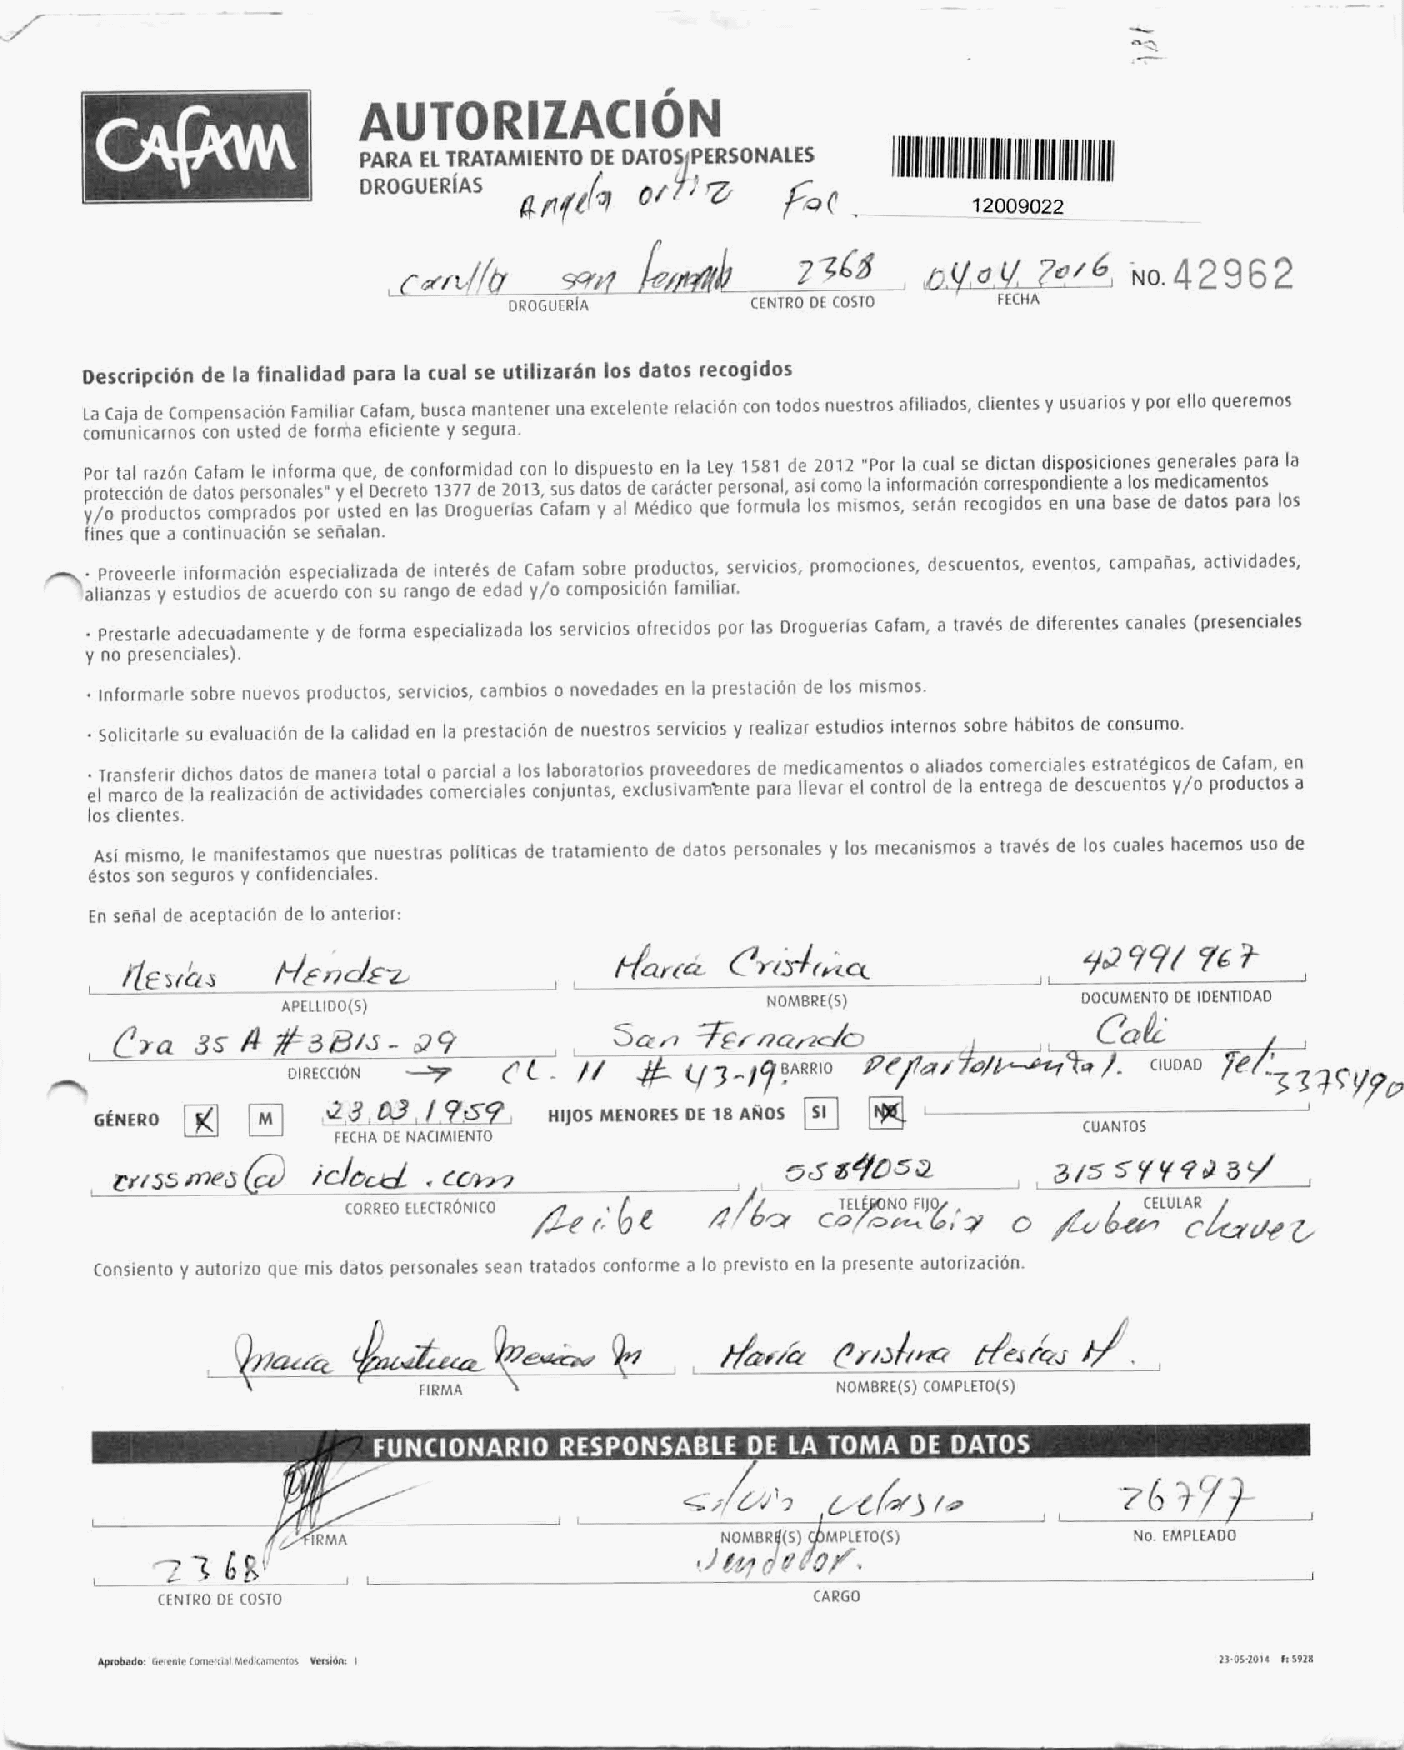 CAFAM
AUTORIZACIÓN
PARA EL TRATAMIENTO DE DATOS PERSONALES
DROGUERÍAS
Angela Ortiz Fac.
12009022
san fernando 2368 04.04.2016 NO. 42962
DROGUERÍA CENTRO DE COSTO FECHA
Descripción de la finalidad para la cual se utilizarán los datos recogidos
La Caja de Compensación Familiar Cafam, busca mantener una excelente relación con todos nuestros afiliados, clientes y usuarios y por ello queremos
comunicarnos con usted de forma eficiente y segura.
Por tal razón Cafam le informa que, de conformidad con lo dispuesto en la Ley 1581 de 2012 "Por la cual se dictan disposiciones generales para la
protección de datos personales" y el Decreto 1377 de 2013, sus datos de carácter personal, asi como la información correspondiente a los medicamentos
y/o productos comprados por usted en las Droguerías Cafam y al Médico que formula los mismos, serán recogidos en una base de datos para los
fines que a continuación se señalan.
· Proveerle información especializada de interés de Cafam sobre productos, servicios, promociones, descuentos, eventos, campañas, actividades,
alianzas y estudios de acuerdo con su rango de edad y/o composición familiar.
· Prestarle adecuadamente y de forma especializada los servicios ofrecidos por las Droguerías Cafam, a través de diferentes canales (presenciales
y no presenciales).
· Informarle sobre nuevos productos, servicios, cambios o novedades en la prestación de los mismos.
· Solicitarle su evaluación de la calidad en la prestación de nuestros servicios y realizar estudios internos sobre hábitos de consumo.
· Transferir dichos datos de manera total o parcial a los laboratorios proveedores de medicamentos o aliados comerciales estratégicos de Cafam, en
el marco de la realización de actividades comerciales conjuntas, exclusivamente para llevar el control de la entrega de descuentos y/o productos a
los clientes.
Así mismo, le manifestamos que nuestras políticas de tratamiento de datos personales y los mecanismos a través de los cuales hacemos uso de
éstos son seguros y confidenciales.
En señal de aceptación de lo anterior:
Mesías Méndez María Cristina 42991967
APELLIDO(S) NOMBRE(S) DOCUMENTO DE IDENTIDAD
Cra 35 A #3BIS-29 San Fernando Cali
DIRECCIÓN BARRIO CIUDAD
→ CL. 11 # 43-19 Departamental. Tel: 3375490
GÉNERO F M 23.03.1959 HIJOS MENORES DE 18 AÑOS SI NO
FECHA DE NACIMIENTO CUANTOS
crissmes@icloud.com 5584052 3155449234
CORREO ELECTRÓNICO TELÉFONO FIJO CELULAR
Recibe Alba Colombia o Ruben chavez
Consiento y autorizo que mis datos personales sean tratados conforme a lo previsto en la presente autorización.
María Cristina Mesías M María Cristina Mesías M.
FIRMA NOMBRE(S) COMPLETO(S)
FUNCIONARIO RESPONSABLE DE LA TOMA DE DATOS
26797
FIRMA NOMBRE(S) COMPLETO(S) No. EMPLEADO
2368 Vendedor.
CENTRO DE COSTO CARGO
Aprobado: Gerente Comercial Medicamentos Versión: 1
23-05-2014 F: 5928